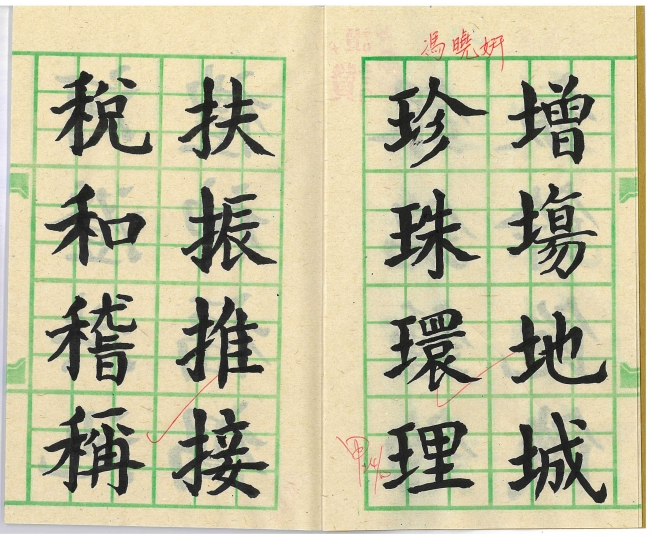 馮曉妍
增塲地城
珍珠環理
扶振推接
稅和稽稱
甲